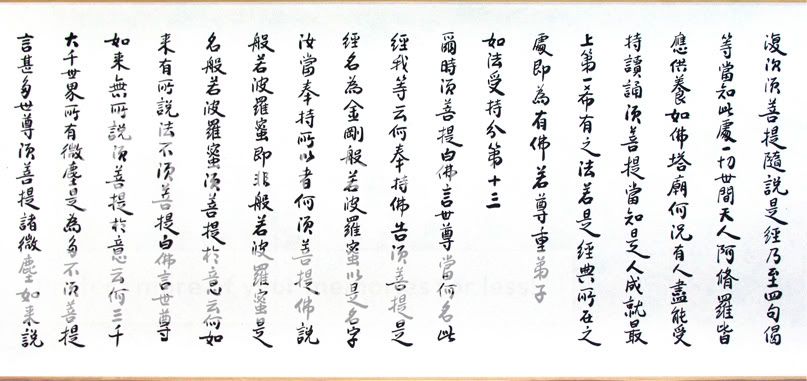 復次須菩提隨說是經乃至四句偈
等當知此處一切世間天人阿脩羅皆
應供養如佛塔廟何況有人盡能受
持讀誦須菩提當知是人成就最
上第一希有之法若是經典所在之
處即為有佛若尊重弟子
如法受持分第十三
爾時須菩提白佛言世尊當何名此
經我等云何奉持佛告須菩提是
經名為金剛般若波羅蜜以是名字
汝當奉持所以者何須菩提佛說
般若波羅蜜即非般若波羅蜜是
名般若波羅蜜須菩提於意云何如
来有所說法不須菩提白佛言世尊
如来無所說須菩提於意云何三千
大千世界所有微塵是為多不須菩提
言甚多世尊須菩提諸微塵如来說